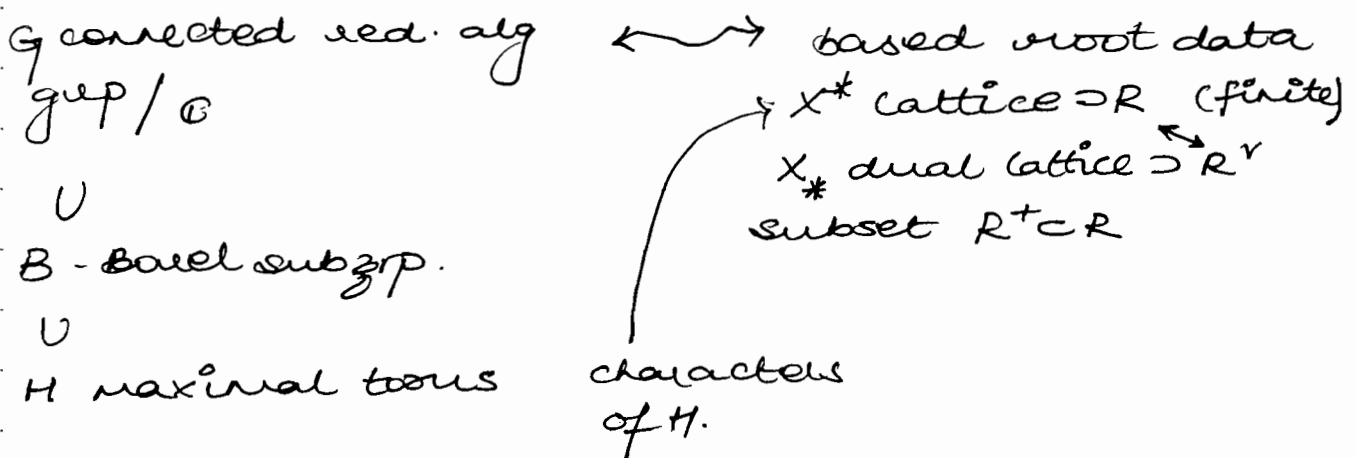 G connected red. alg ↔ based root data
grp / ℂ
X* lattice ⊃ R (finite)
X_* dual lattice ⊃ R^∨
∪
subset R^+ ⊂ R
B - Borel subgrp.
∪
H maximal torus characters
of H.